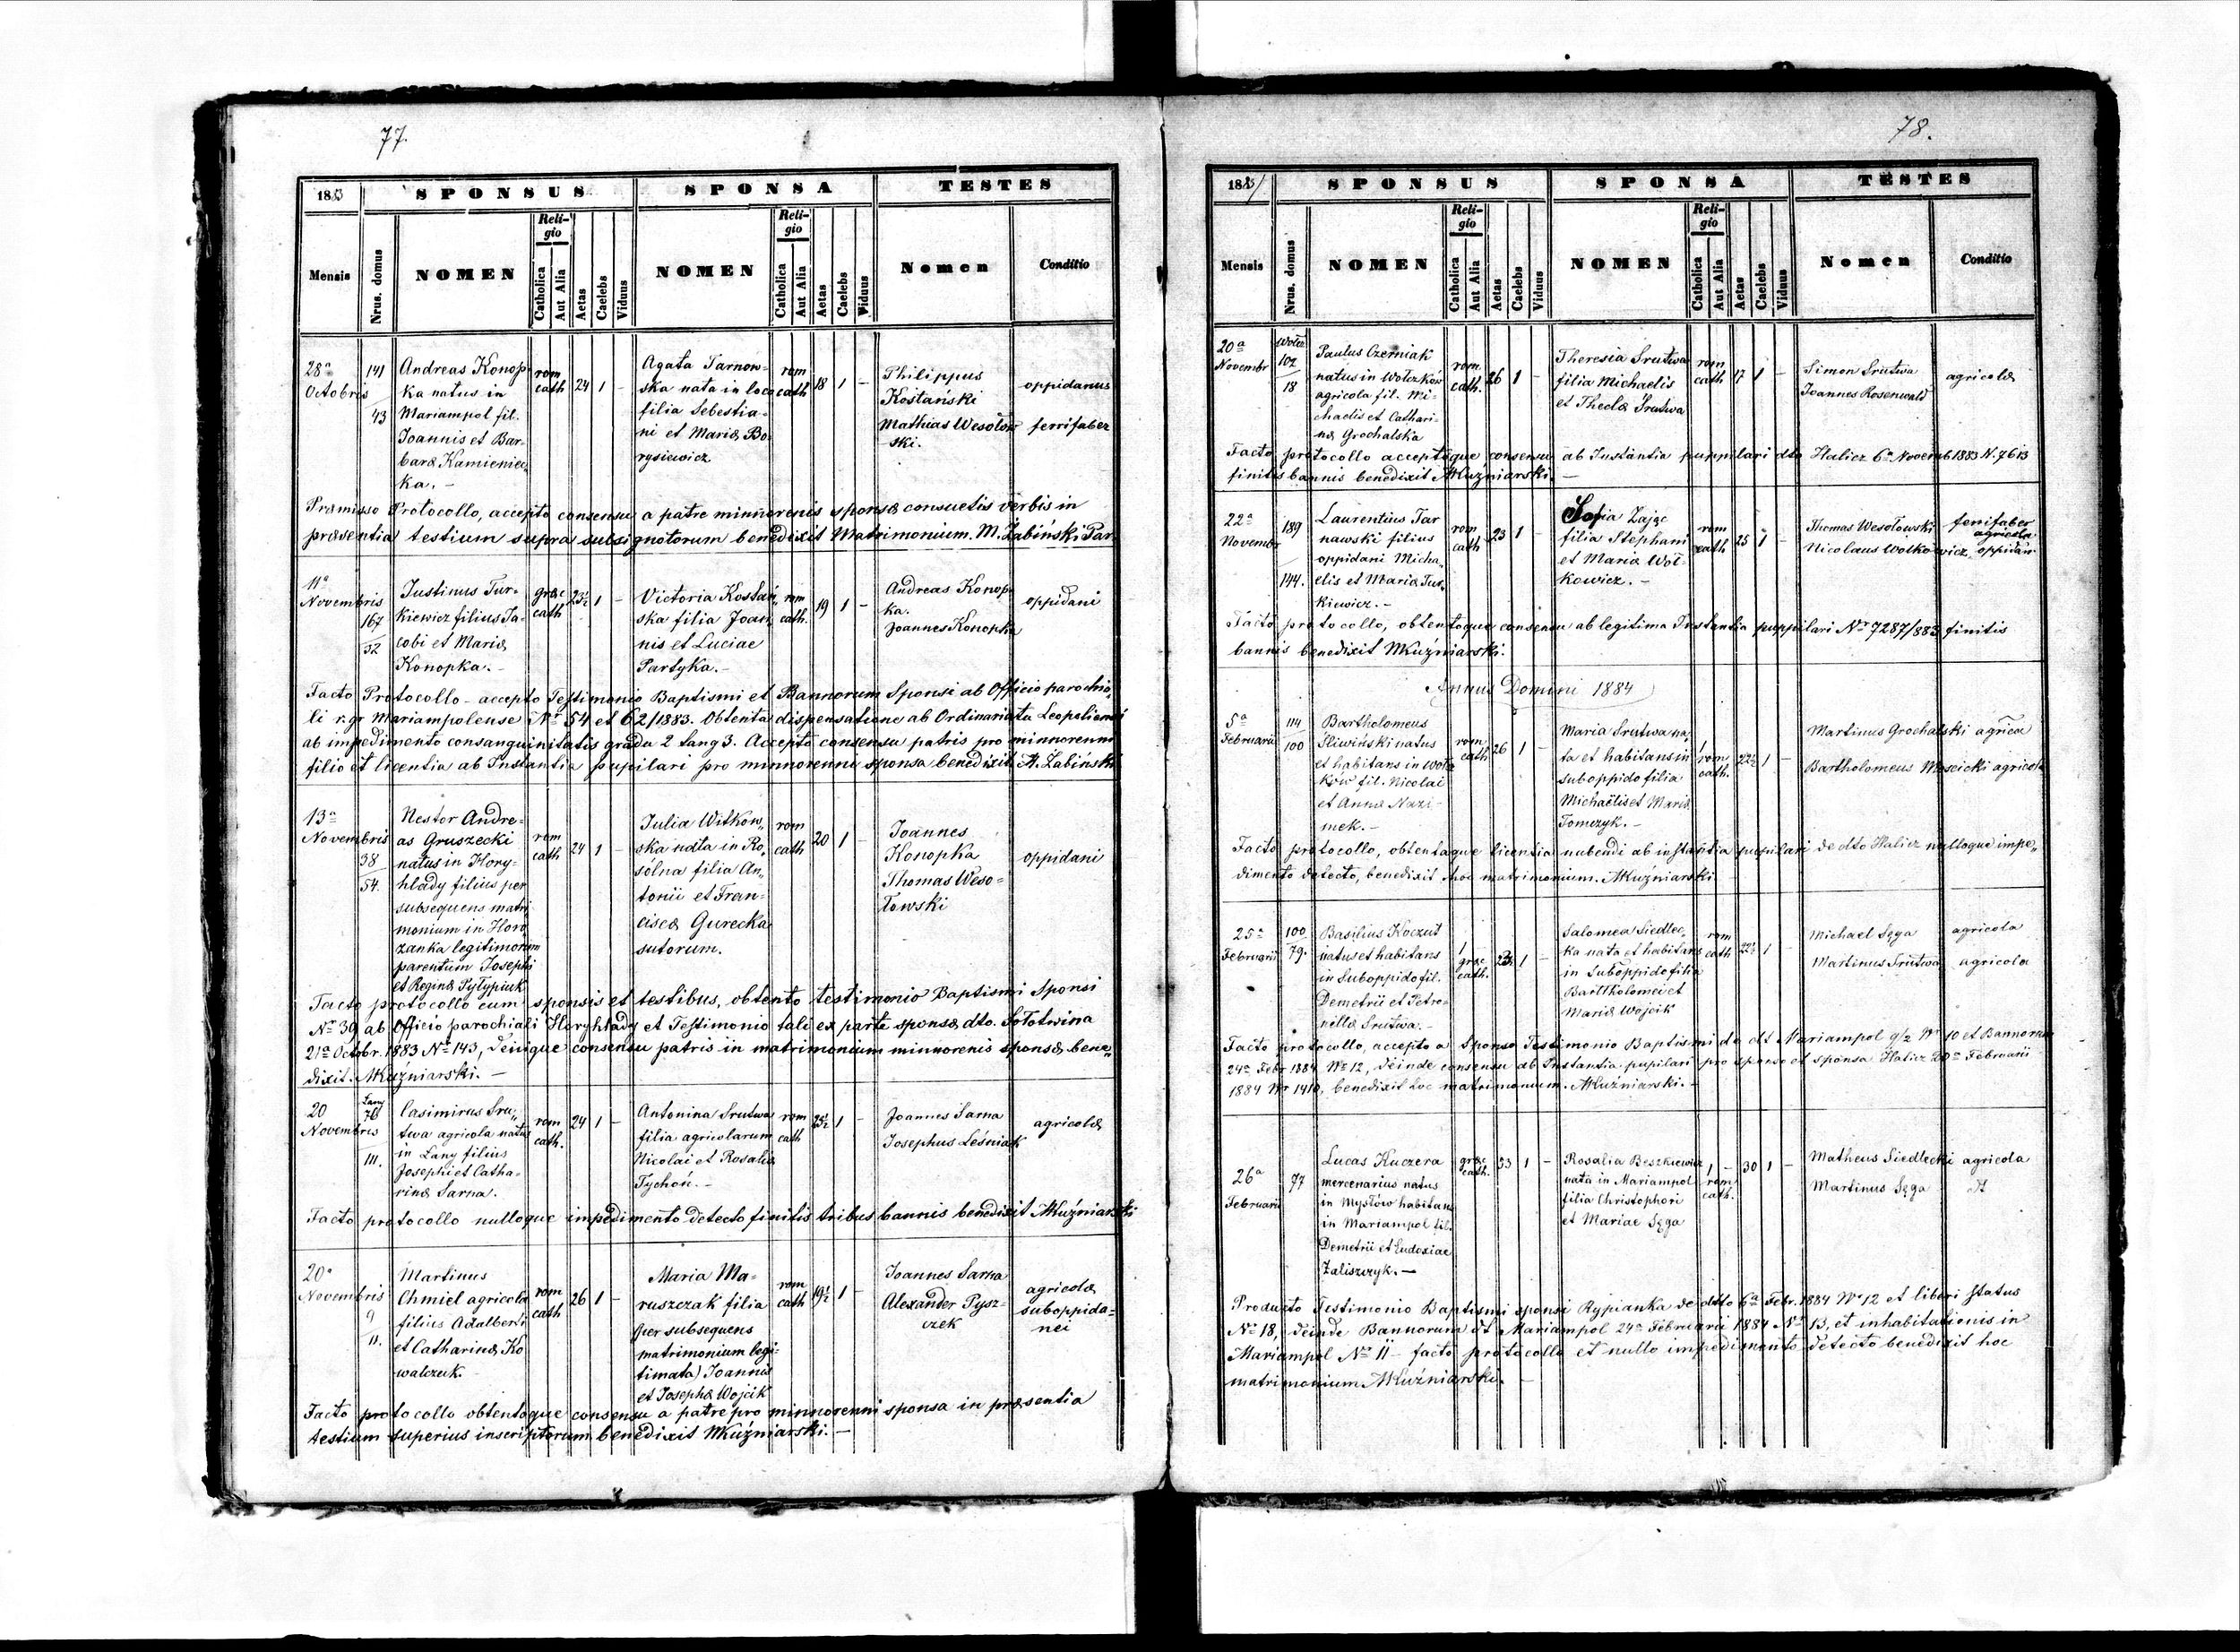 77.
1883
SPONSUS
SPONSA
TESTES
Mensis
Nrus. domus
NOMEN
Religio
Catholica
Aut Alia
Aetas
Caelebs
Viduus
NOMEN
Religio
Catholica
Aut Alia
Aetas
Caelebs
Viduus
Nomen
Conditio
28a
Octobris
141
43
Andreas Konop
ka natus in
Mariampol fil.
Joannis et Bar
baræ Kamieniec
ka. –
rom
cath
24
1
–
Agata Tarnow-
ska nata in loco
filia Sebestia-
ni et Mariæ Bo
rysiewicz
rom
cath
18
1
–
Philippus
Kostański
Mathias Wesołow
ski.
oppidanus
ferrifaber
Præmisso Protocollo, accepto consensu a patre minnorenis sponsæ consuetis verbis in
præsentia testium supra subsignotorum benedixit Matrimonium. M. Żabiński Par.
11a
Novembris
167
52
Justinus Tur-
kiewicz filius Ja-
cobi et Mariæ
Konopka. –
græc
cath
23½
1
–
Victoria Kostań
ska filia Joan
nis et Luciae
Partyka. –
rom
cath.
19
1
–
Andreas Konop
ka.
Joannes Konopka
oppidani
Facto Protocollo – accepto Testimonio Baptismi et Bannorum Sponsi ab Officio parochia
li r. gr Mariampolense Nr 54 et 62/1883. Obtenta dispensatione ab Ordinariatu Leopoliensi
ab impedimento consanguinitatis gradu 2 tang 3. Accepto consensu patris pro minnorenni
filio et licentia ab Instantia pupilari pro minnorenni sponsa benedixit M. Żabiński
13a
Novembris
58
54.
Nestor Andre-
as Gruszecki
natus in Hory-
hlady filius per
subsequens matri
monium in Horo
zanka legitimorum
parentum Josephi
et Reginæ Pylypiuk
rom
cath
24
1
–
Julia Witkow
ska nata in Ro
sólna filia An
tonii et Fran-
ciscæ Gurecka
sutorum.
rom
cath
20
1
–
Joannes
Konopka
Thomas Weso-
łowski
oppidani
Facto protocollo cum sponsis et testibus, obtento testimonio Baptismi Sponsi
Nr 39 ab Officio parochiali Horyhlady et Testimonio tali ex parte sponsæ dto. Sołotwina
21a Octobr. 1883 Nr 143, denique consensu patris in matrimonium minnorenis sponsæ bene
dixit. MKuźniarski. –
20
Novembris
Lany
76
111.
Casimirus Sru
twa agricola natus
in Lany filius
Josephi et Catha-
rinæ Sarna.
rom
cath.
24
1
–
Antonina Srutwa
filia agricolarum
Nicolai et Rosaliæ
Tychoń. –
rom
cath
25½
1
–
Joannes Sarna
Josephus Leśniak
agricolæ
Facto protocollo nulloque impedimento detecto finitis tribus bannis benedixit MKuźniarski
20a
Novembris
9
11.
Martinus
Chmiel agricola
filius Adalberti
et Catharinæ Ko
walczuk.
rom
cath
26
1
–
Maria Ma-
ruszczak filia
(per subsequens
matrimonium legi-
timata) Joannis
et Josephæ Wojcik
rom
cath
19½
1
–
Joannes Sarna
Alexander Pysz-
czek
agricolæ
suboppida-
nei
Facto protocollo obtentoque consensu a patre pro minnorenni sponsa in præsentia
testium superius inscriptorum benedixit MKuźniarski. –
78.
SPONSUS
SPONSA
TESTES
Mensis
Nrus. domus
NOMEN
Religio
Catholica
Aut Alia
Aetas
Caelebs
Viduus
NOMEN
Religio
Catholica
Aut Alia
Aetas
Caelebs
Viduus
Nomen
Conditio
20a
Novembr
102
18
Paulus Czerniak
natus in Wołczków
agricola fil. Mi-
chaelis et Cathari-
næ Grochalska
rom
cath.
26
1
–
Theresia Srutwa
filia Michaelis
et Theclæ Srutwa
rom
cath
17
1
–
Simon Srutwa
Joannes Rosenwald
agricolæ
Facto protocollo acceptoque consensu ab Instantia puppilari dto Halicz 6a Novemb 1883 N. 7613
finitis bannis benedixit MKuźniarski. –
22a
Novembr
189
144.
Laurentius Tar
nawski filius
oppidani Micha
elis et Mariæ Tur
kiewicz. –
rom
cath
23
1
–
Sofia Zając
filia Stephani
et Mariæ Woł-
kowicz. –
rom
cath
25
1
–
Thomas Wesołowski
Nicolaus Wołkowicz
ferrifaber
agricola
oppidan
Facto protocollo, obtentoque consensu ab legitima Instantia puppilari Nr 7287/883 finitis
bannis benedixit MKuźniarski.
Annus Domini 1884
5a
Februarii
114
100
Bartholomeus
Śliwiński natus
et habitans in Wołcz
ków fil. Nicolai
et Annæ Nazi-
mek. –
rom
cath
26
1
–
Maria Srutwa na
ta et habitans in
suboppido filia
Michaëlis et Mariæ
Tomczyk. –
1
rom
cath.
22½
1
–
Martinus Grochalski agricol
Bartholomeus Mościcki agricola
Facto protocollo, obtentaque licentia nubendi ab instantia pupilari de dto Halicz nulloque impe
dimento detecto, benedixit hoc matrimonium. MKuzniarski
25a
Februarii
100
79.
Basilius Koczut
natus et habitans
in Suboppido fil.
Demetrii et Petro-
nillæ Srutwa. –
1
græc
cath.
23½
1
–
Salomea Siedlec
ka nata et habitans
in Suboppido filia
Barttholomei et
Mariæ Wojcik
rom
cath
22½
1
–
Michael Sęga
Martinus Srutwa
agricola
agricola
Facto protocollo, accepto a Sponso Testimonio Baptismi de dt Mariampol g/r Nr 10 et Bannorum
24a Febr 1884 Nr 12, deinde consensu ab Instantia pupilari pro sponso et sponsa Halicz 20a Februarii
1884 Nr 1410, benedixit hoc matrimonium. MKuzniarski. –
26a
Februarii
77
Lucas Kuczera
mercenarius natus
in Mysłów habitans
in Mariampol fil.
Demetrii et Eudoxiae
Zaliszczyk. –
græc
cath.
33
1
–
Rosalia Beszkiewicz
nata in Mariampol
filia Christophori
et Mariae Sęga
1
rom
cath.
–
30
1
–
Matheus Siedlecki agricola
Martinus Sęga
Producto Testimonio Baptismi sponsi Rypianka de dtto 6a Febr. 1884 Nr 12 et liberi status
Nr 18, deinde Bannorum dt Mariampol 24a Februarii 1884 Nr 13, et inhabitationis in
Mariampol Nr 11 – facto protocollo et nullo impedimento detecto benedixit hoc
matrimonium MKuźniarski.